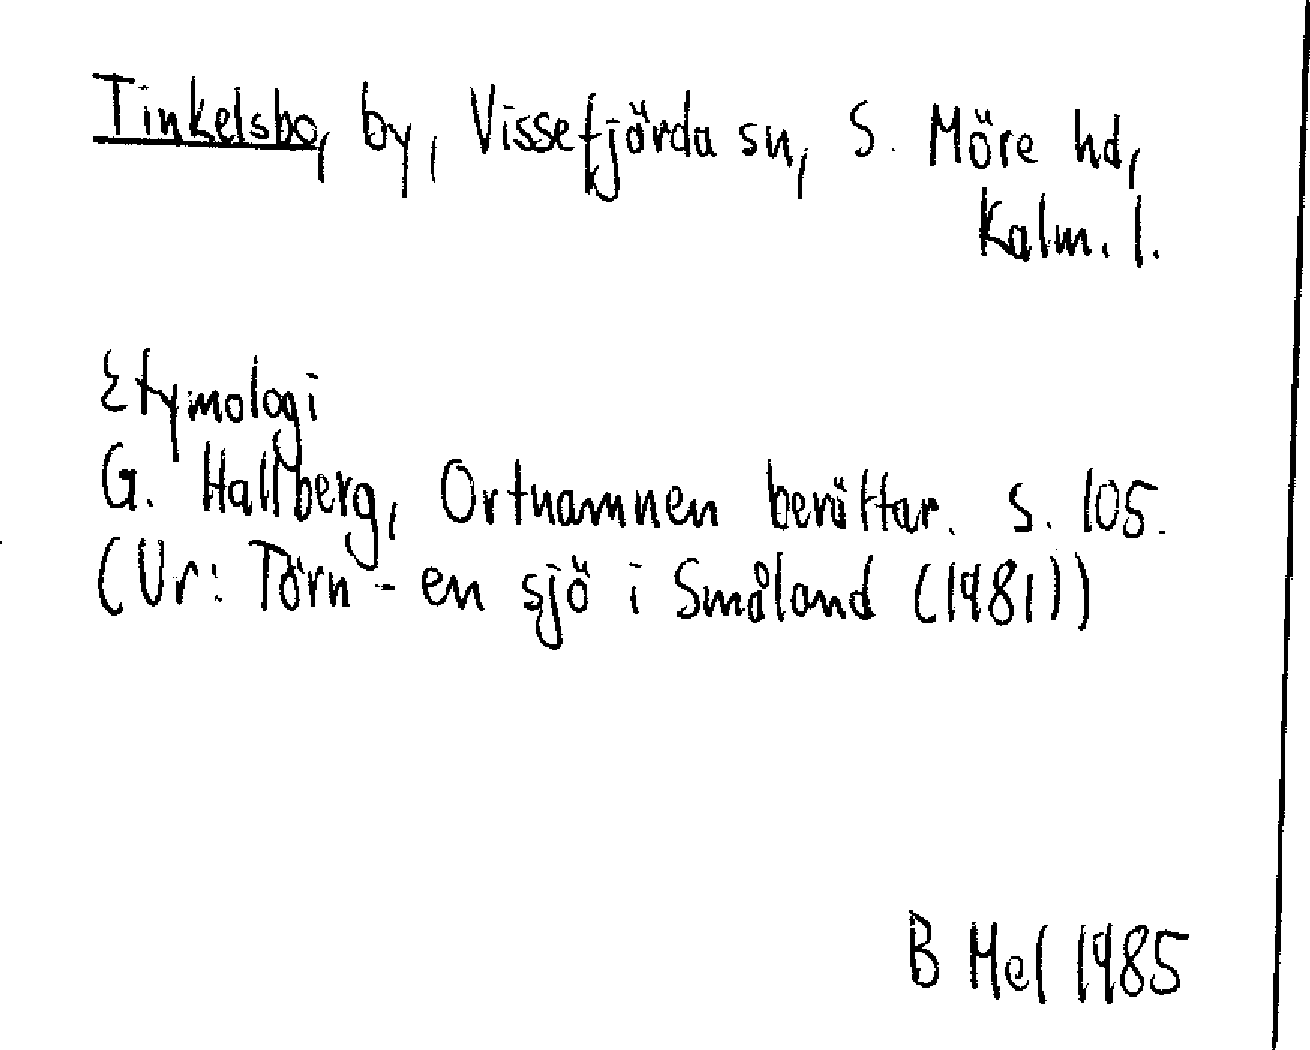 Tinkelsbo, by, Vissefjärda sn, S. Möre hd,
Kalm. l.
Etymologi
G. Hallberg, Ortnamnen berättar. s. 105.
(Ur: Törn - en sjö i Småland (1981))
B Mel 1985